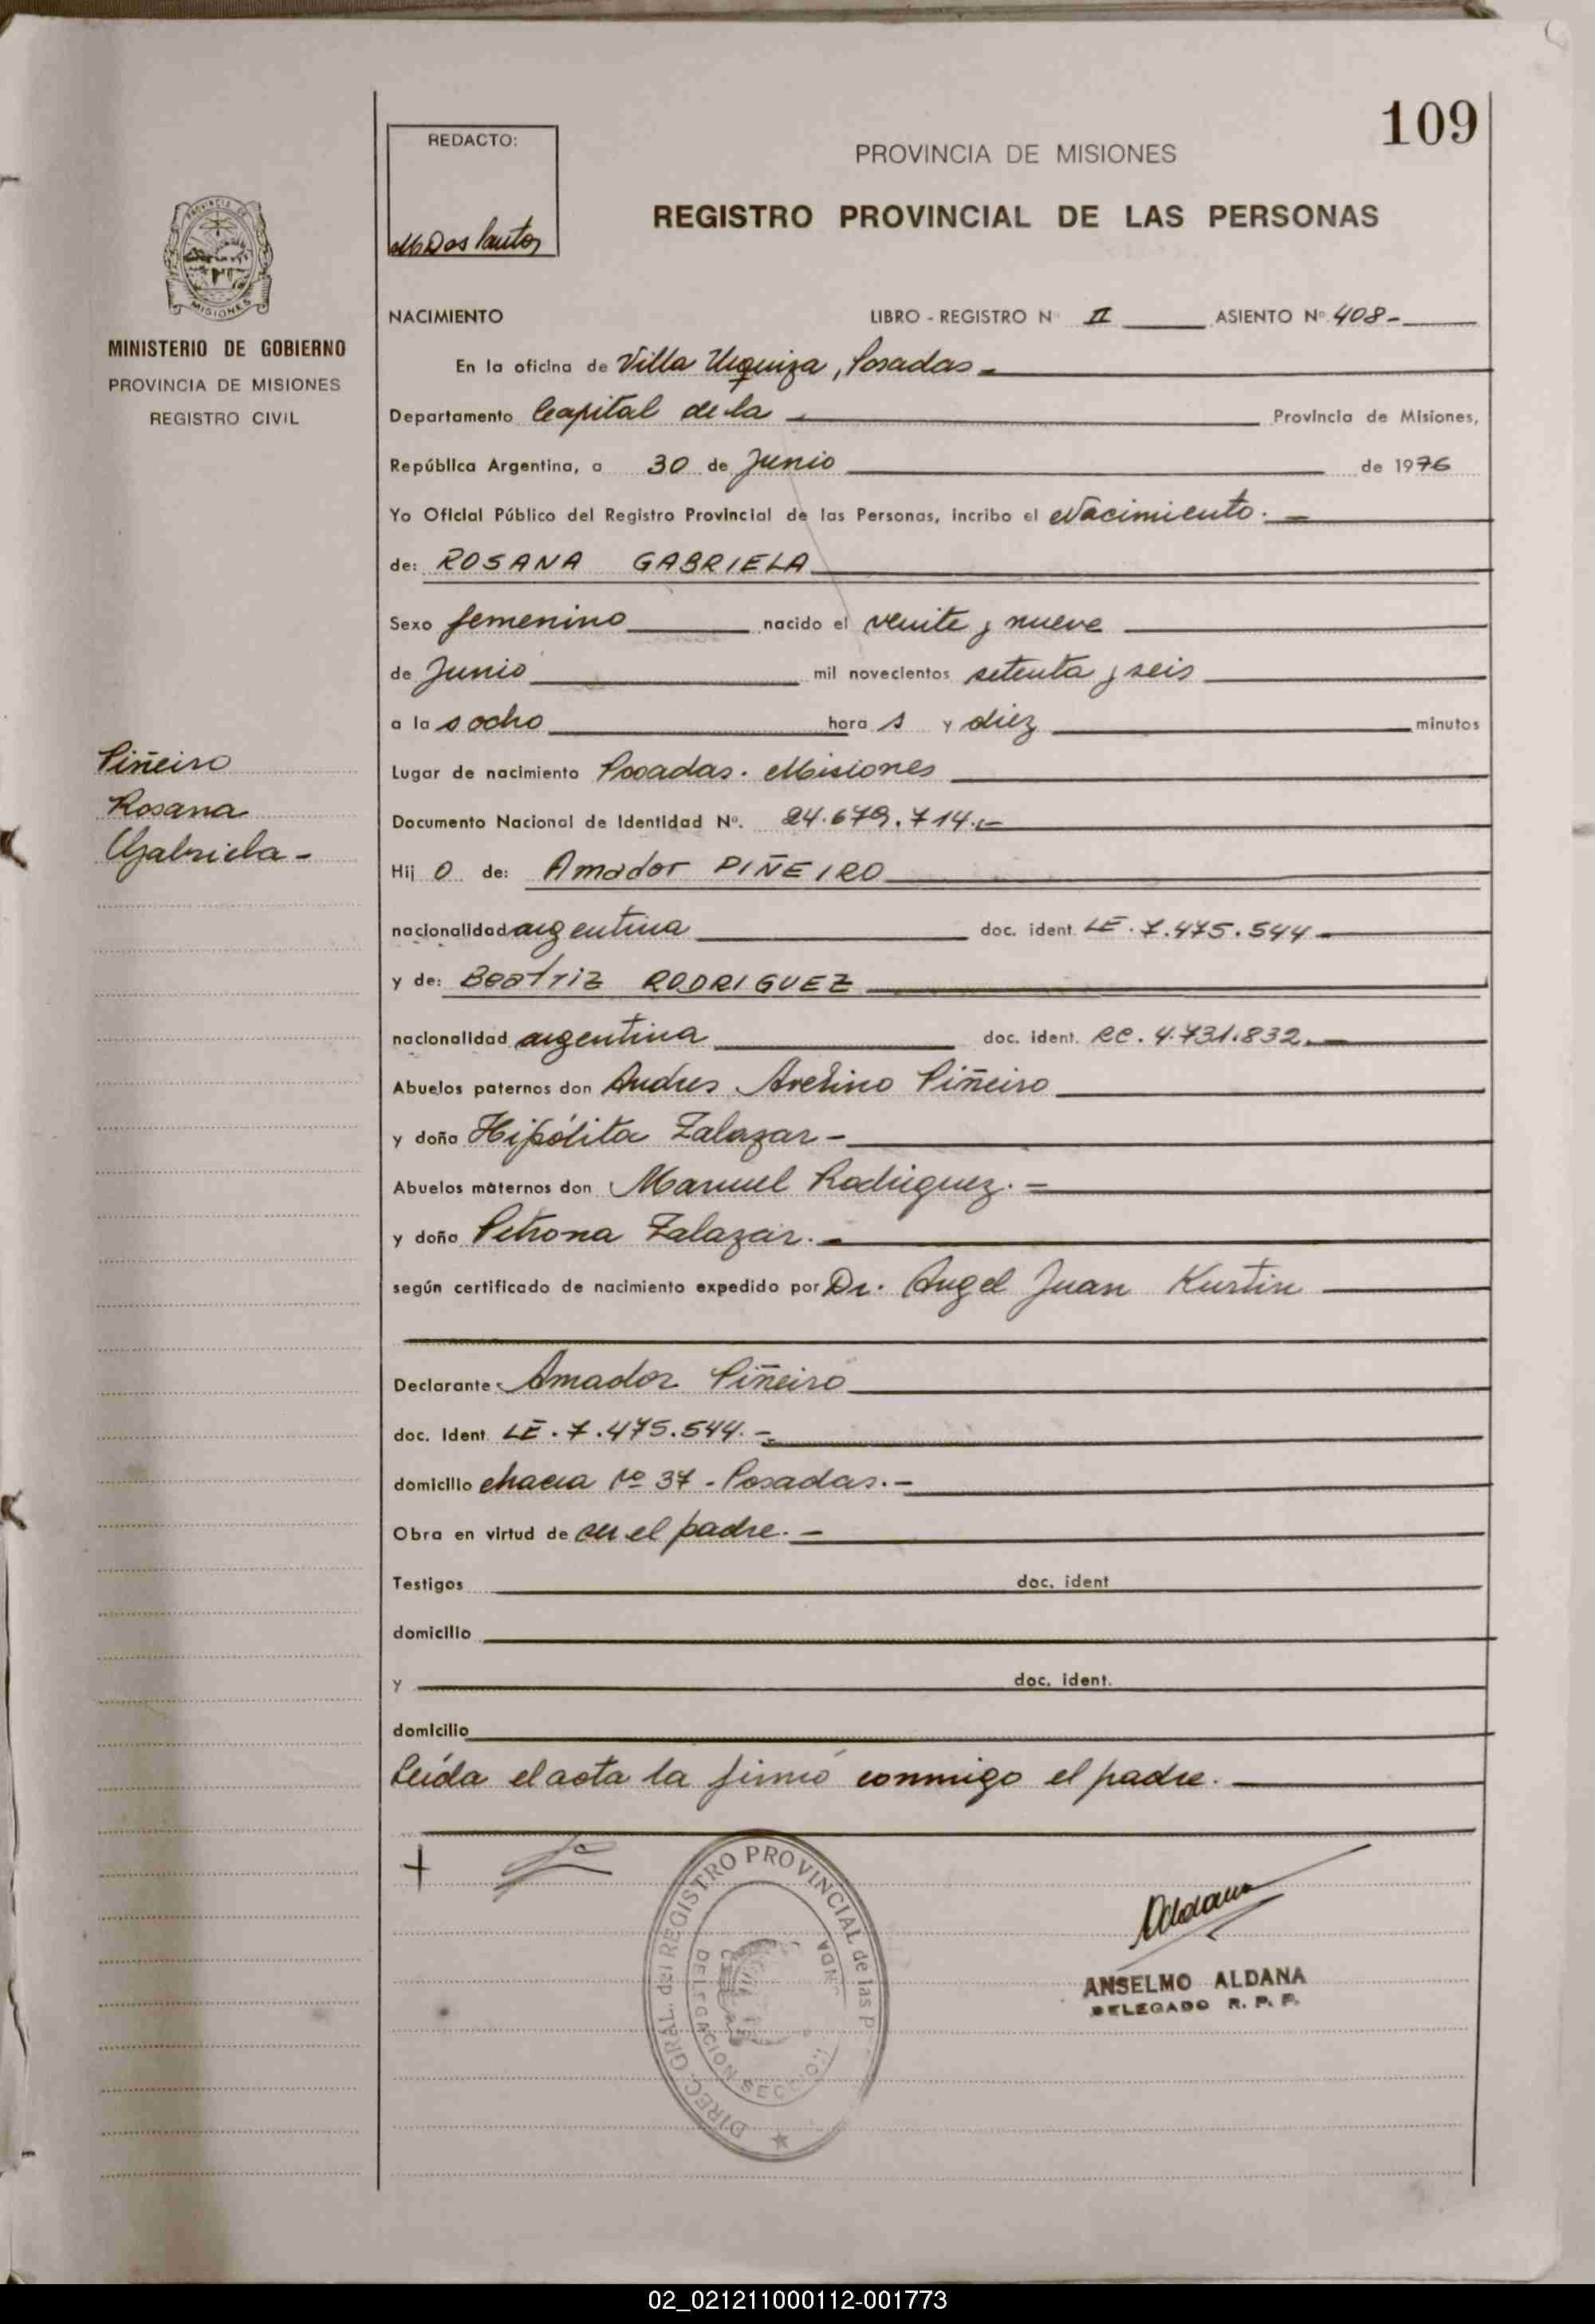 109
REDACTO:
M Dos Santos
PROVINCIA DE MISIONES
REGISTRO PROVINCIAL DE LAS PERSONAS
PROVINCIA DE
MISIONES
MINISTERIO DE GOBIERNO
PROVINCIA DE MISIONES
REGISTRO CIVIL
NACIMIENTO LIBRO - REGISTRO Nº II ASIENTO Nº 408-
En la oficina de Villa Urquiza, Posadas
Departamento Capital de la Provincia de Misiones,
República Argentina, a 30 de Junio de 1976
Yo Oficial Público del Registro Provincial de las Personas, incribo el Nacimiento.-
de: ROSANA GABRIELA
Sexo femenino nacido el veinte y nueve
de Junio mil novecientos setenta y seis
a la s ocho hora s y diez minutos
Lugar de nacimiento Posadas. Misiones
Documento Nacional de Identidad Nº. 24.679.714.-
Hij o de: Amador PIÑEIRO
nacionalidad argentina doc. ident. LE. 7.475.544
y de: Beatriz RODRIGUEZ
nacionalidad argentina doc. ident. RC. 4.731.832.
Abuelos paternos don Andres Avelino Piñeiro
y doña Hipólita Zalazar-
Abuelos maternos don Manuel Rodriguez.-
y doña Petrona Zalazar.-
según certificado de nacimiento expedido por Dr. Angel Juan Kurtin
Declarante Amador Piñeiro
doc. Ident LE. 7.475.544.-
domicilio chacra Nº 37 - Posadas.-
Obra en virtud de ser el padre.-
Testigos doc. ident
domicilio
y doc. ident.
domicilio
Leída el acta la firmó conmigo el padre.
Piñeiro
Rosana
Gabriela-
Aldana
ANSELMO ALDANA
DELEGADO R. P. P.
DIREC. GRAL. del REGISTRO PROVINCIAL de las P
DELEGACION SECCIO
02_021211000112-001773